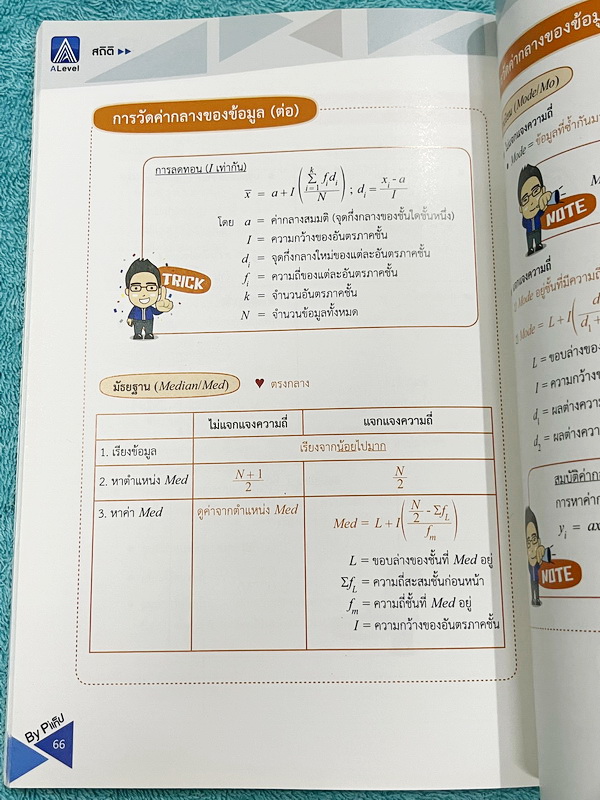 ALevel
สถิติ
การวัดค่ากลางของข้อมูล (ต่อ)
การลดทอน (I เท่ากัน)
x̄ = a + I (Σ_{i=1}^{k} f_i d_i / N) ; d_i = (x_i - a) / I
โดย a = ค่ากลางสมมติ (จุดกึ่งกลางของชั้นใดชั้นหนึ่ง)
I = ความกว้างของอันตรภาคชั้น
d_i = จุดกึ่งกลางใหม่ของแต่ละอันตรภาคชั้น
f_i = ความถี่ของแต่ละอันตรภาคชั้น
k = จำนวนอันตรภาคชั้น
N = จำนวนข้อมูลทั้งหมด
TRICK
มัธยฐาน (Median/Med) ♥ ตรงกลาง
ไม่แจกแจงความถี่ แจกแจงความถี่
1. เรียงข้อมูล เรียงจากน้อยไปมาก
2. หาตำแหน่ง Med (N + 1) / 2 N / 2
3. หาค่า Med ดูค่าจากตำแหน่ง Med Med = L + I((N/2 - Σf_L) / f_m)
L = ขอบล่างของชั้นที่ Med อยู่
Σf_L = ความถี่สะสมชั้นก่อนหน้า
f_m = ความถี่ชั้นที่ Med อยู่
I = ความกว้างของอันตรภาคชั้น
By Pแท็ป
66
(Mode/Mo)
Mode = ข้อมูลที่ซ้ำกัน
NOTE
Mode อยู่ชั้นที่มีความถี่
Mode = L + I(d / d_1 +
L = ขอบล่างของ
I = ความกว้าง
d_1 = ผลต่างความ
d_2 = ผลต่างความ
การหาค่า
y_i = ax
NOTE